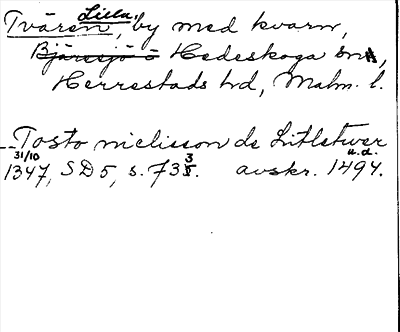 Tvären, Lilla, by med kvarn,
Bjäresjö o Hedeskoga snr,
Herrestads hd, Malm. l.
Tosto nielisson de Litletwer
31/10 1347, SD 5, s. 733. avskr. u.d. 1494.